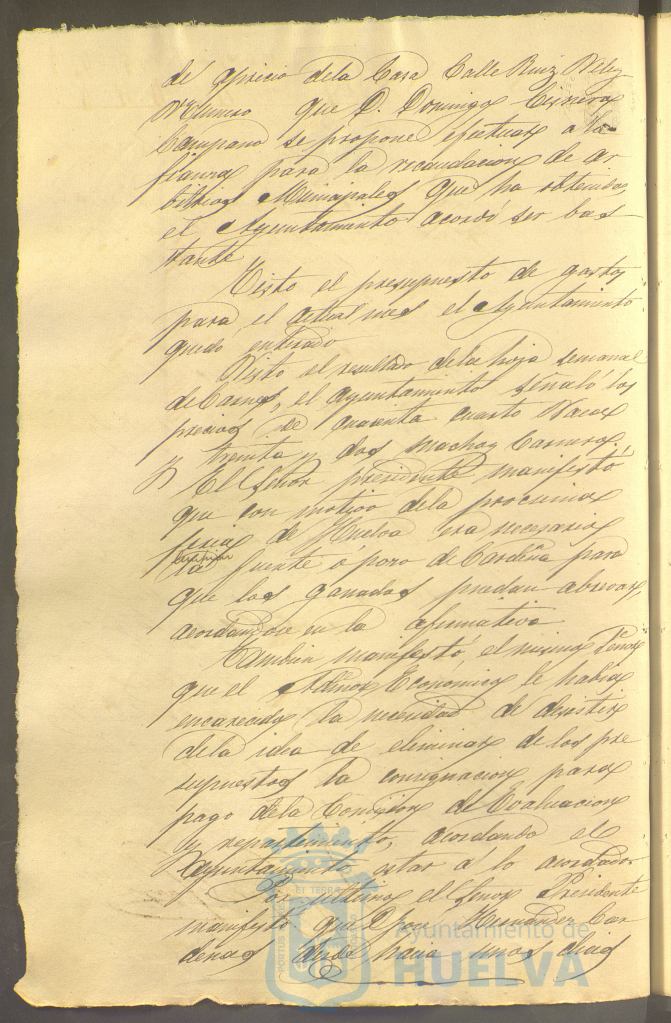 de aprecio dela Casa Calle Ruiz Velez
Numero que D. Domingo Cisneros
Campano se propone efectuar a la
fianza para la recaudacion de ar
bitrios Municipales que ha obtenido,
el Ayuntamiento acordó ser bas
tante
Visto el presupuesto de gastos
para el actual mes el Ayuntamiento
quedo enterado
Visto el resultado dela hoja semanal
de Carnes, el ayuntamiento señaló los
precios de cuarenta cuarto Vacas
y treinta y dos macho Carnero.
El Señor presidente manifestó
que con motivo dela procsima
feria de Huelva era necesario
limpiar
la fuente ó pozo de Cardeña para
que los ganados puedan abrevar,
acordandose en la afirmativa
Tambien manifestó, el mismo Señor
que el Admor Economico le habia
encarecido la necesidad de desistir
dela idea de eliminar de los pre
supuestos la consignacion para
pago dela Comision de Evaluacion
y repartimiento, acordando el
Ayuntamiento estar a lo acordado
Por ultimo el Señor Presidente
manifestó que Don Hernandez Car
denas desde hacia unos dias
ET TERRÆ
PORTUS
Ayuntamiento de
HUELVA